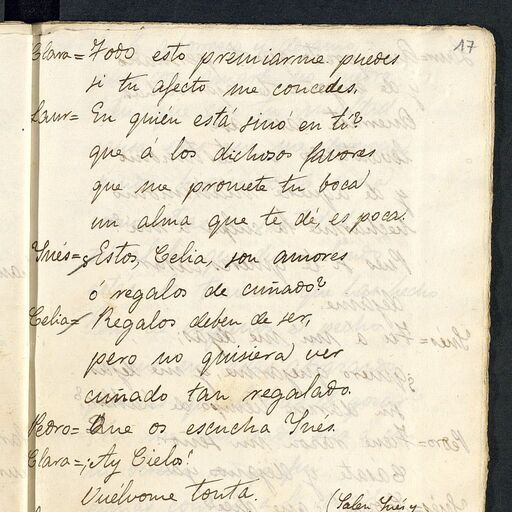 17
Clara= Todo esto premiarme puedes
si tu afecto me concedes.
Laur= En quién está sinó en ti?
que á los dichosos favores
que me promete tu boca
un alma que te dé, es poca.
Ynés= ¿Estos, Celia, son amores
ó regalos de cuñado?
Celia= Regalos deben de ser,
pero no quisiera ver
cuñado tan regalado.
Pedro= Que os escucha Ynés.
Clara= ¡Ay Cielos!
Vuélvome tonta.
(Salen Ynés y